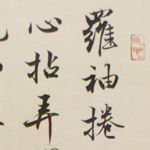 羅袖捲
心拈弄